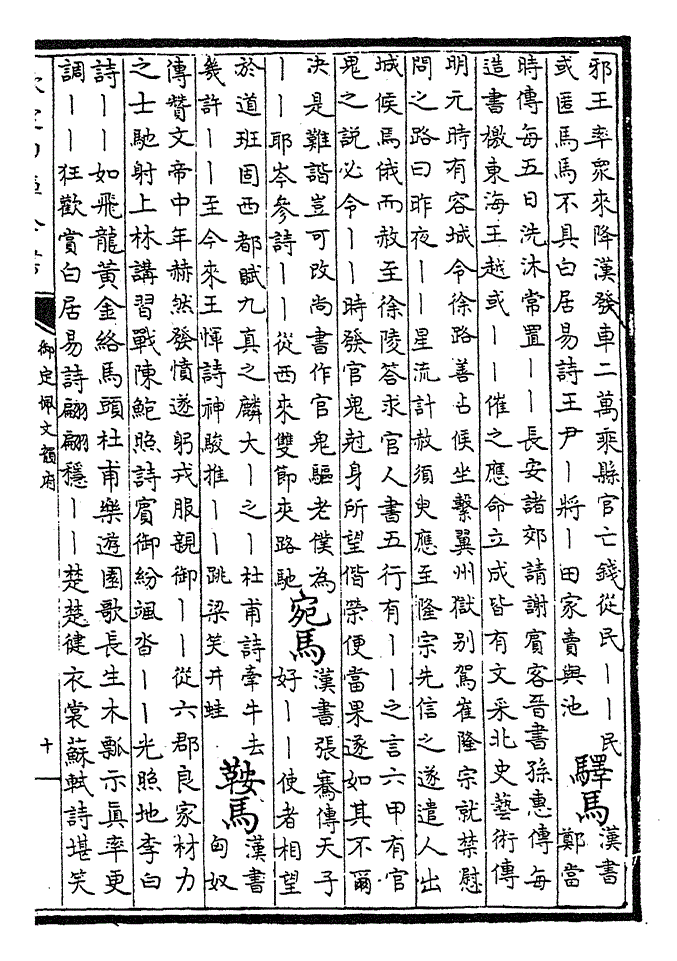 邪王率衆來降漢發車二萬乘縣官亡錢從民丨丨民
或匿馬馬不具白居易詩王尹丨將丨田家賣與池 驛馬 漢書鄭當
時傳每五日洗沐常置丨丨長安諸郊請謝賓客晉書孫惠傳每
造書檄東海王越或丨丨催之應命立成皆有文采北史藝術傳
明元時有容城令徐路善占候坐繫冀州獄别駕崔隆宗就禁慰
問之路曰昨夜丨丨星流計赦須臾應至隆宗先信之遂遣人出
城候焉俄而赦至徐陵答求官人書五行有丨丨之言六甲有官
鬼之説必令丨丨時發官鬼尅身所望偕榮便當果遂如其不爾
决是難諧豈可改尚書作官鬼驅老僕為
丨丨耶岑參詩丨丨從西來雙節夾路馳 宛馬 漢書張騫傳天子
好丨丨使者相望
於道班固西都賦九真之麟大丨之丨杜甫詩牽牛去
幾許丨丨至今來王惲詩神駿推丨丨跳梁笑井蛙 鞍馬 漢書
匈奴
傳贊文帝中年赫然發憤遂躬戎服親御丨丨從六郡良家材力
之士馳射上林講習戰陳鮑照詩賓御紛颯沓丨丨光照地李白
詩丨丨如飛龍黄金絡馬頭杜甫樂遊園歌長生木瓢示真率更
調丨丨狂歡賞白居易詩翩翩穩丨丨楚楚健衣裳蘇軾詩堪笑
御定佩文韻府
十